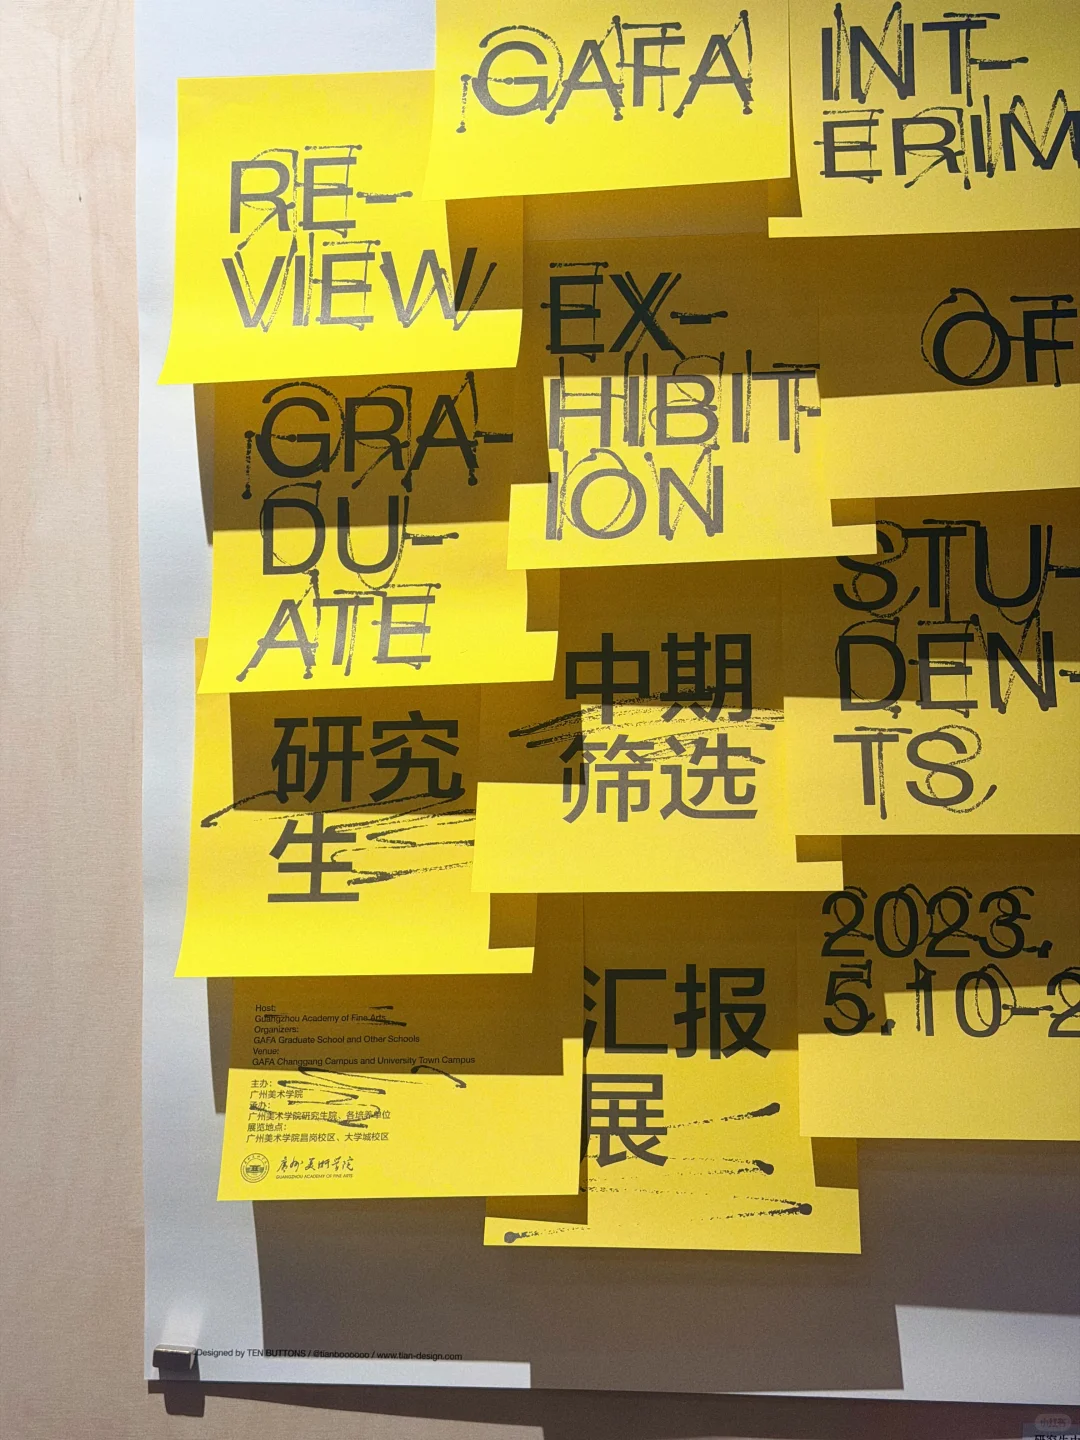 GAFA
INT-
ERIM
RE-
VIEW
EX-
HIBIT-
ION
OF
GRA-
DU-
ATE
STU-
DEN-
TS
研究
生
中期
筛选
汇报
展
2023.
5.10-2
Host:
Guangzhou Academy of Fine Arts
Organizers:
GAFA Graduate School and Other Schools
Venue:
GAFA Changgang Campus and University Town Campus
主办：
广州美术学院
承办：
广州美术学院研究生院、各培养单位
展览地点：
广州美术学院昌岗校区、大学城校区
广州美术学院
GUANGZHOU ACADEMY OF FINE ARTS
Designed by TEN BUTTONS / @tianboooooo / www.tian-design.com
小红书